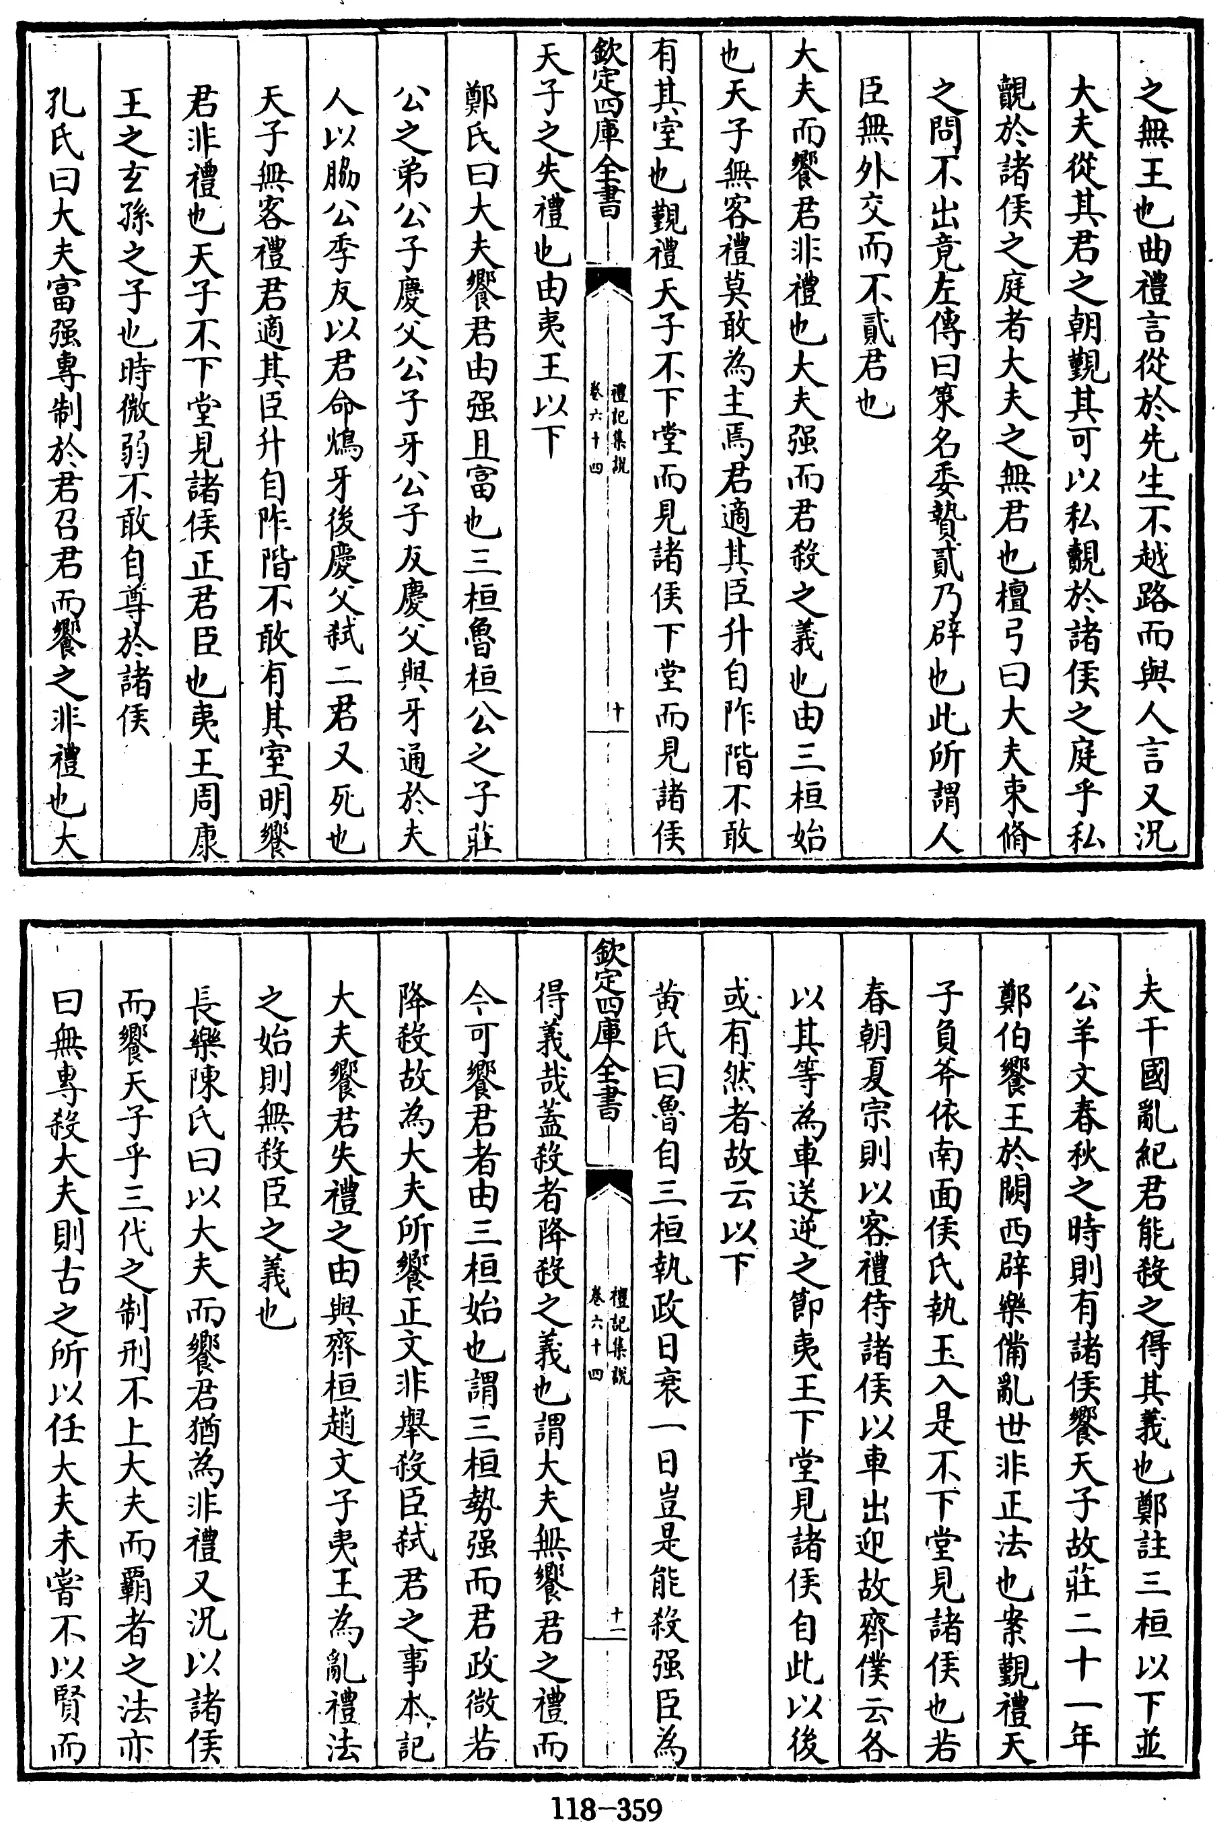 之無王也曲禮言從於先生不越路而與人言又況
大夫從其君之朝覲其可以私覿於諸侯之庭乎私
覿於諸侯之庭者大夫之無君也檀弓曰大夫束脩
之問不出竟左傳曰策名委贄貳乃辟也此所謂人
臣無外交而不貳君也
大夫而饗君非禮也大夫强而君殺之義也由三桓始
也天子無客禮莫敢為主焉君適其臣升自阼階不敢
有其室也覲禮天子不下堂而見諸侯下堂而見諸侯
欽定四庫全書
禮記集說
卷六十四
十
天子之失禮也由夷王以下
鄭氏曰大夫饗君由强且富也三桓魯桓公之子莊
公之弟公子慶父公子牙公子友慶父與牙通於夫
人以脇公季友以君命鴆牙後慶父弒二君又死也
天子無客禮君適其臣升自阼階不敢有其室明饗
君非禮也天子不下堂見諸侯正君臣也夷王周康
王之玄孫之子也時微弱不敢自尊於諸侯
孔氏曰大夫富强專制於君召君而饗之非禮也大
夫干國亂紀君能殺之得其義也鄭註三桓以下並
公羊文春秋之時則有諸侯饗天子故莊二十一年
鄭伯饗王於闕西辟樂備亂世非正法也案覲禮天
子負斧依南面侯氏執玉入是不下堂見諸侯也若
春朝夏宗則以客禮待諸侯以車出迎故齊僕云各
以其等為車送逆之節夷王下堂見諸侯自此以後
或有然者故云以下
黄氏曰魯自三桓執政日衰一日豈是能殺强臣為
欽定四庫全書
禮記集說
卷六十四
十一
得義哉蓋殺者降殺之義也謂大夫無饗君之禮而
今可饗君者由三桓始也謂三桓勢强而君政微若
降殺故為大夫所饗正文非舉殺臣弒君之事本記
大夫饗君失禮之由與齊桓趙文子夷王為亂禮法
之始則無殺臣之義也
長樂陳氏曰以大夫而饗君猶為非禮又況以諸侯
而饗天子乎三代之制刑不上大夫而覇者之法亦
曰無專殺大夫則古之所以任大夫未嘗不以賢而
118-359